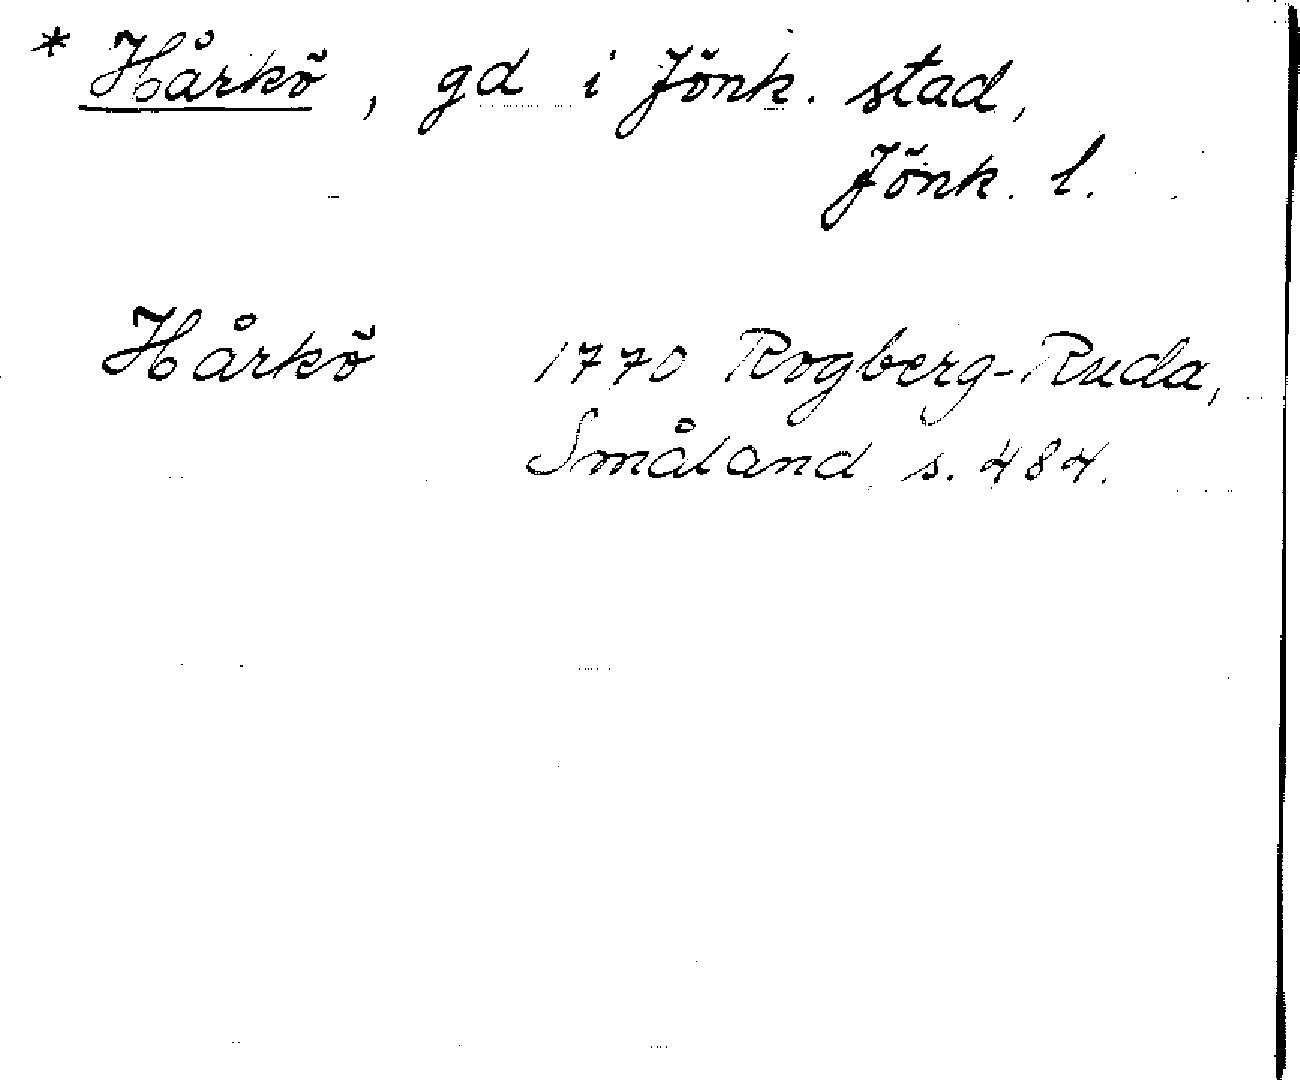 * Hårkö, gd i Jönk. stad,
Jönk. l.
Hårkö 1770 Rogberg-Ruda,
Småland s. 484.